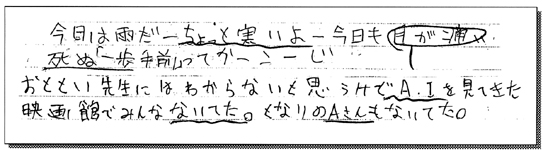 今日は雨だーちょっと寒いよー今日も
死ぬ一歩手前ってかーこーじ
おととい先生にはわからないと思うけでA.Iを見てきた
映画館でみんなないてた。となりのAさんもないてた。